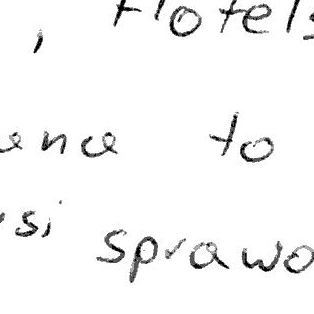 , Hotels
ence to
usi sprawo